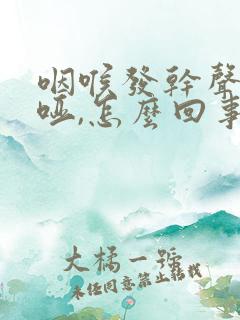 咽喉發幹聲
啞,怎麽回事
大橘一號
未经同意禁止转载